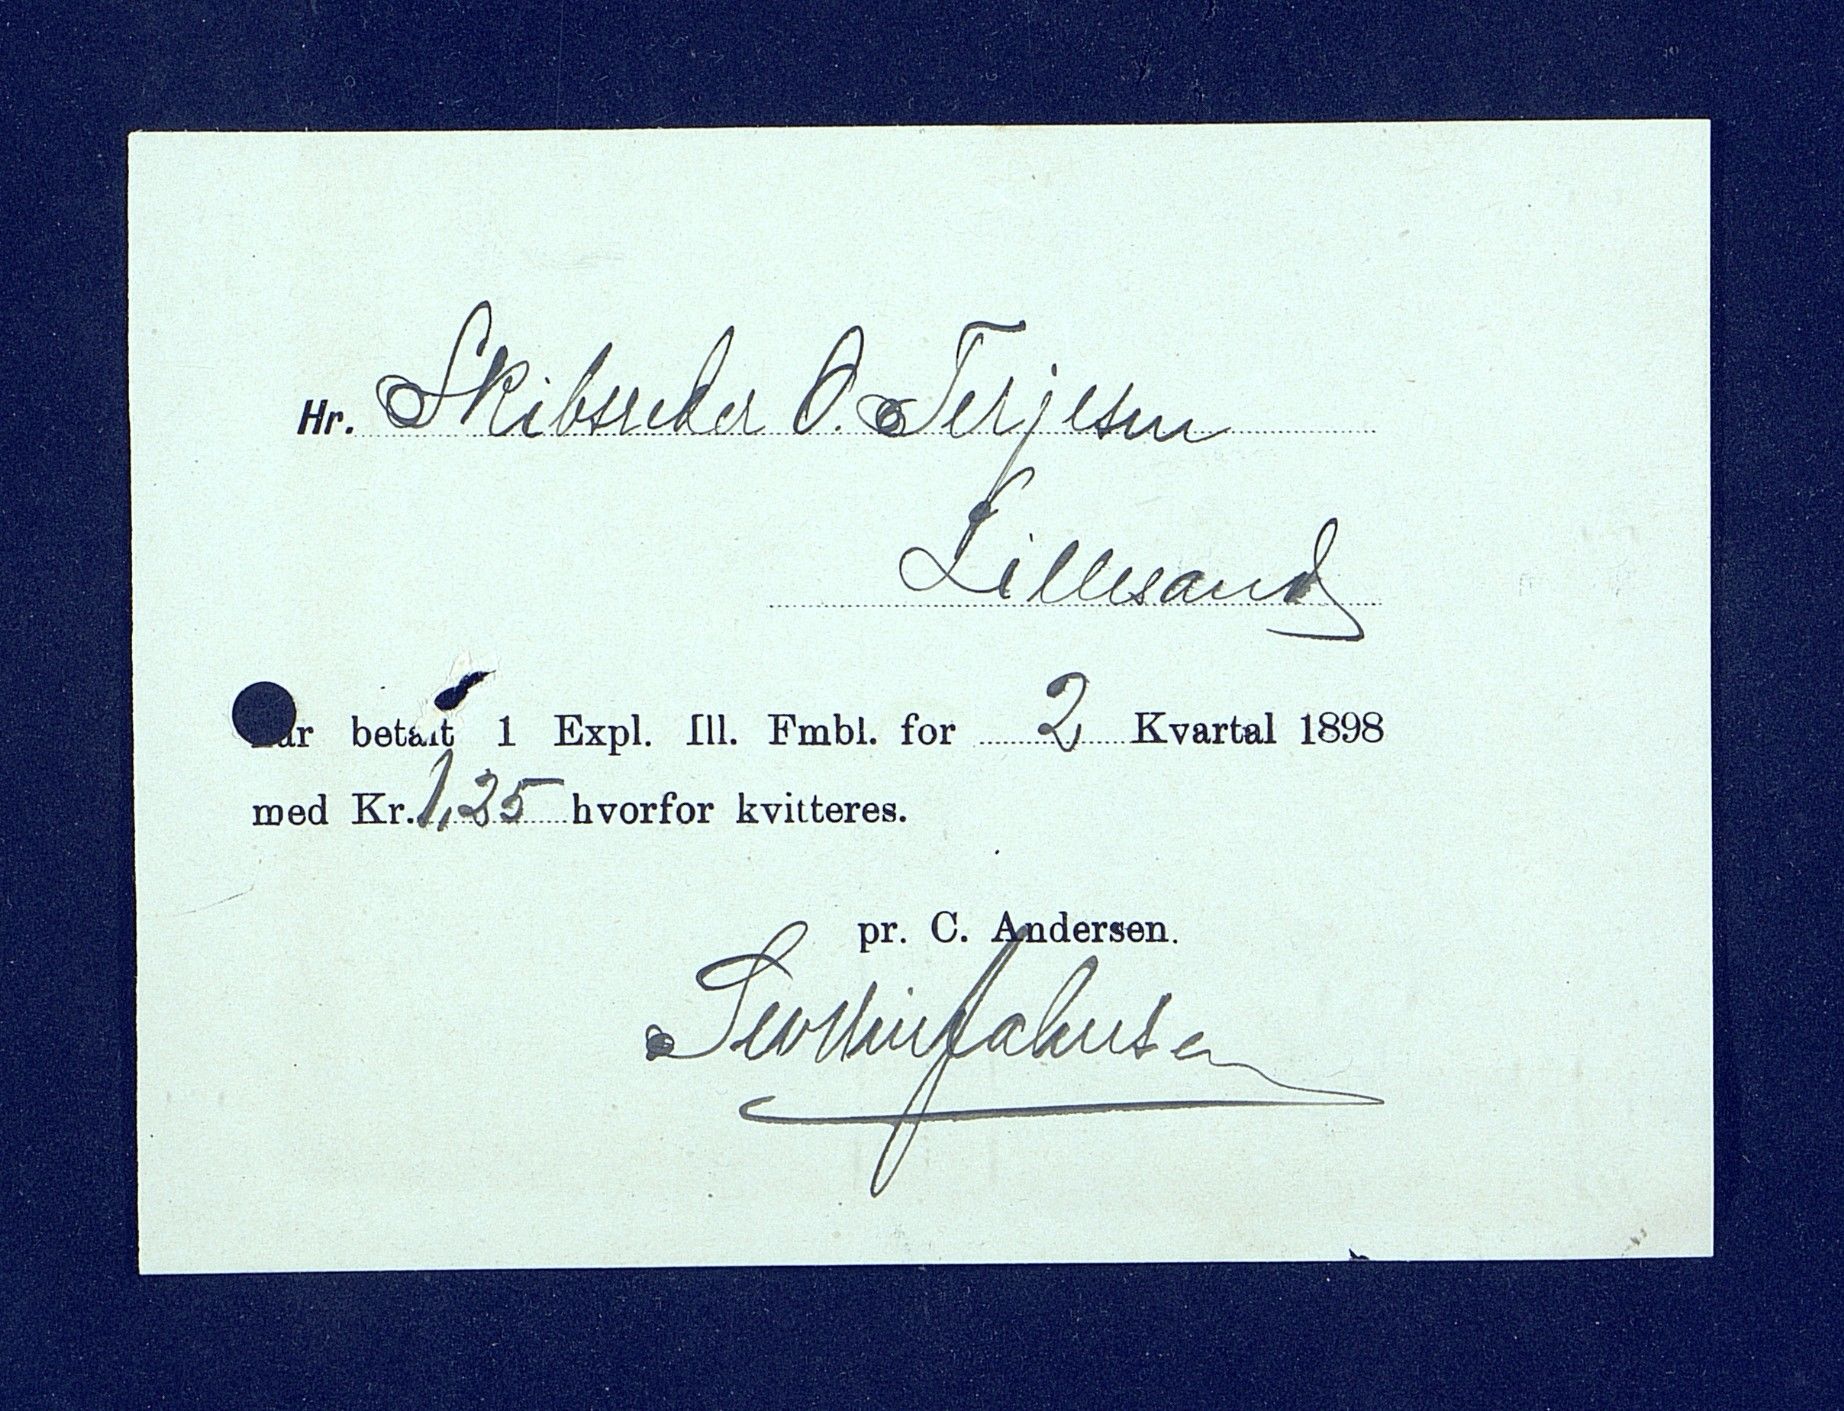 Hr. Skibsreder O. Terjesen
Lillesand
Har betalt 1 Expl. Ill. Fmbl. for 2 Kvartal 1898
med Kr. 1,25 hvorfor kvitteres.
pr. C. Andersen.